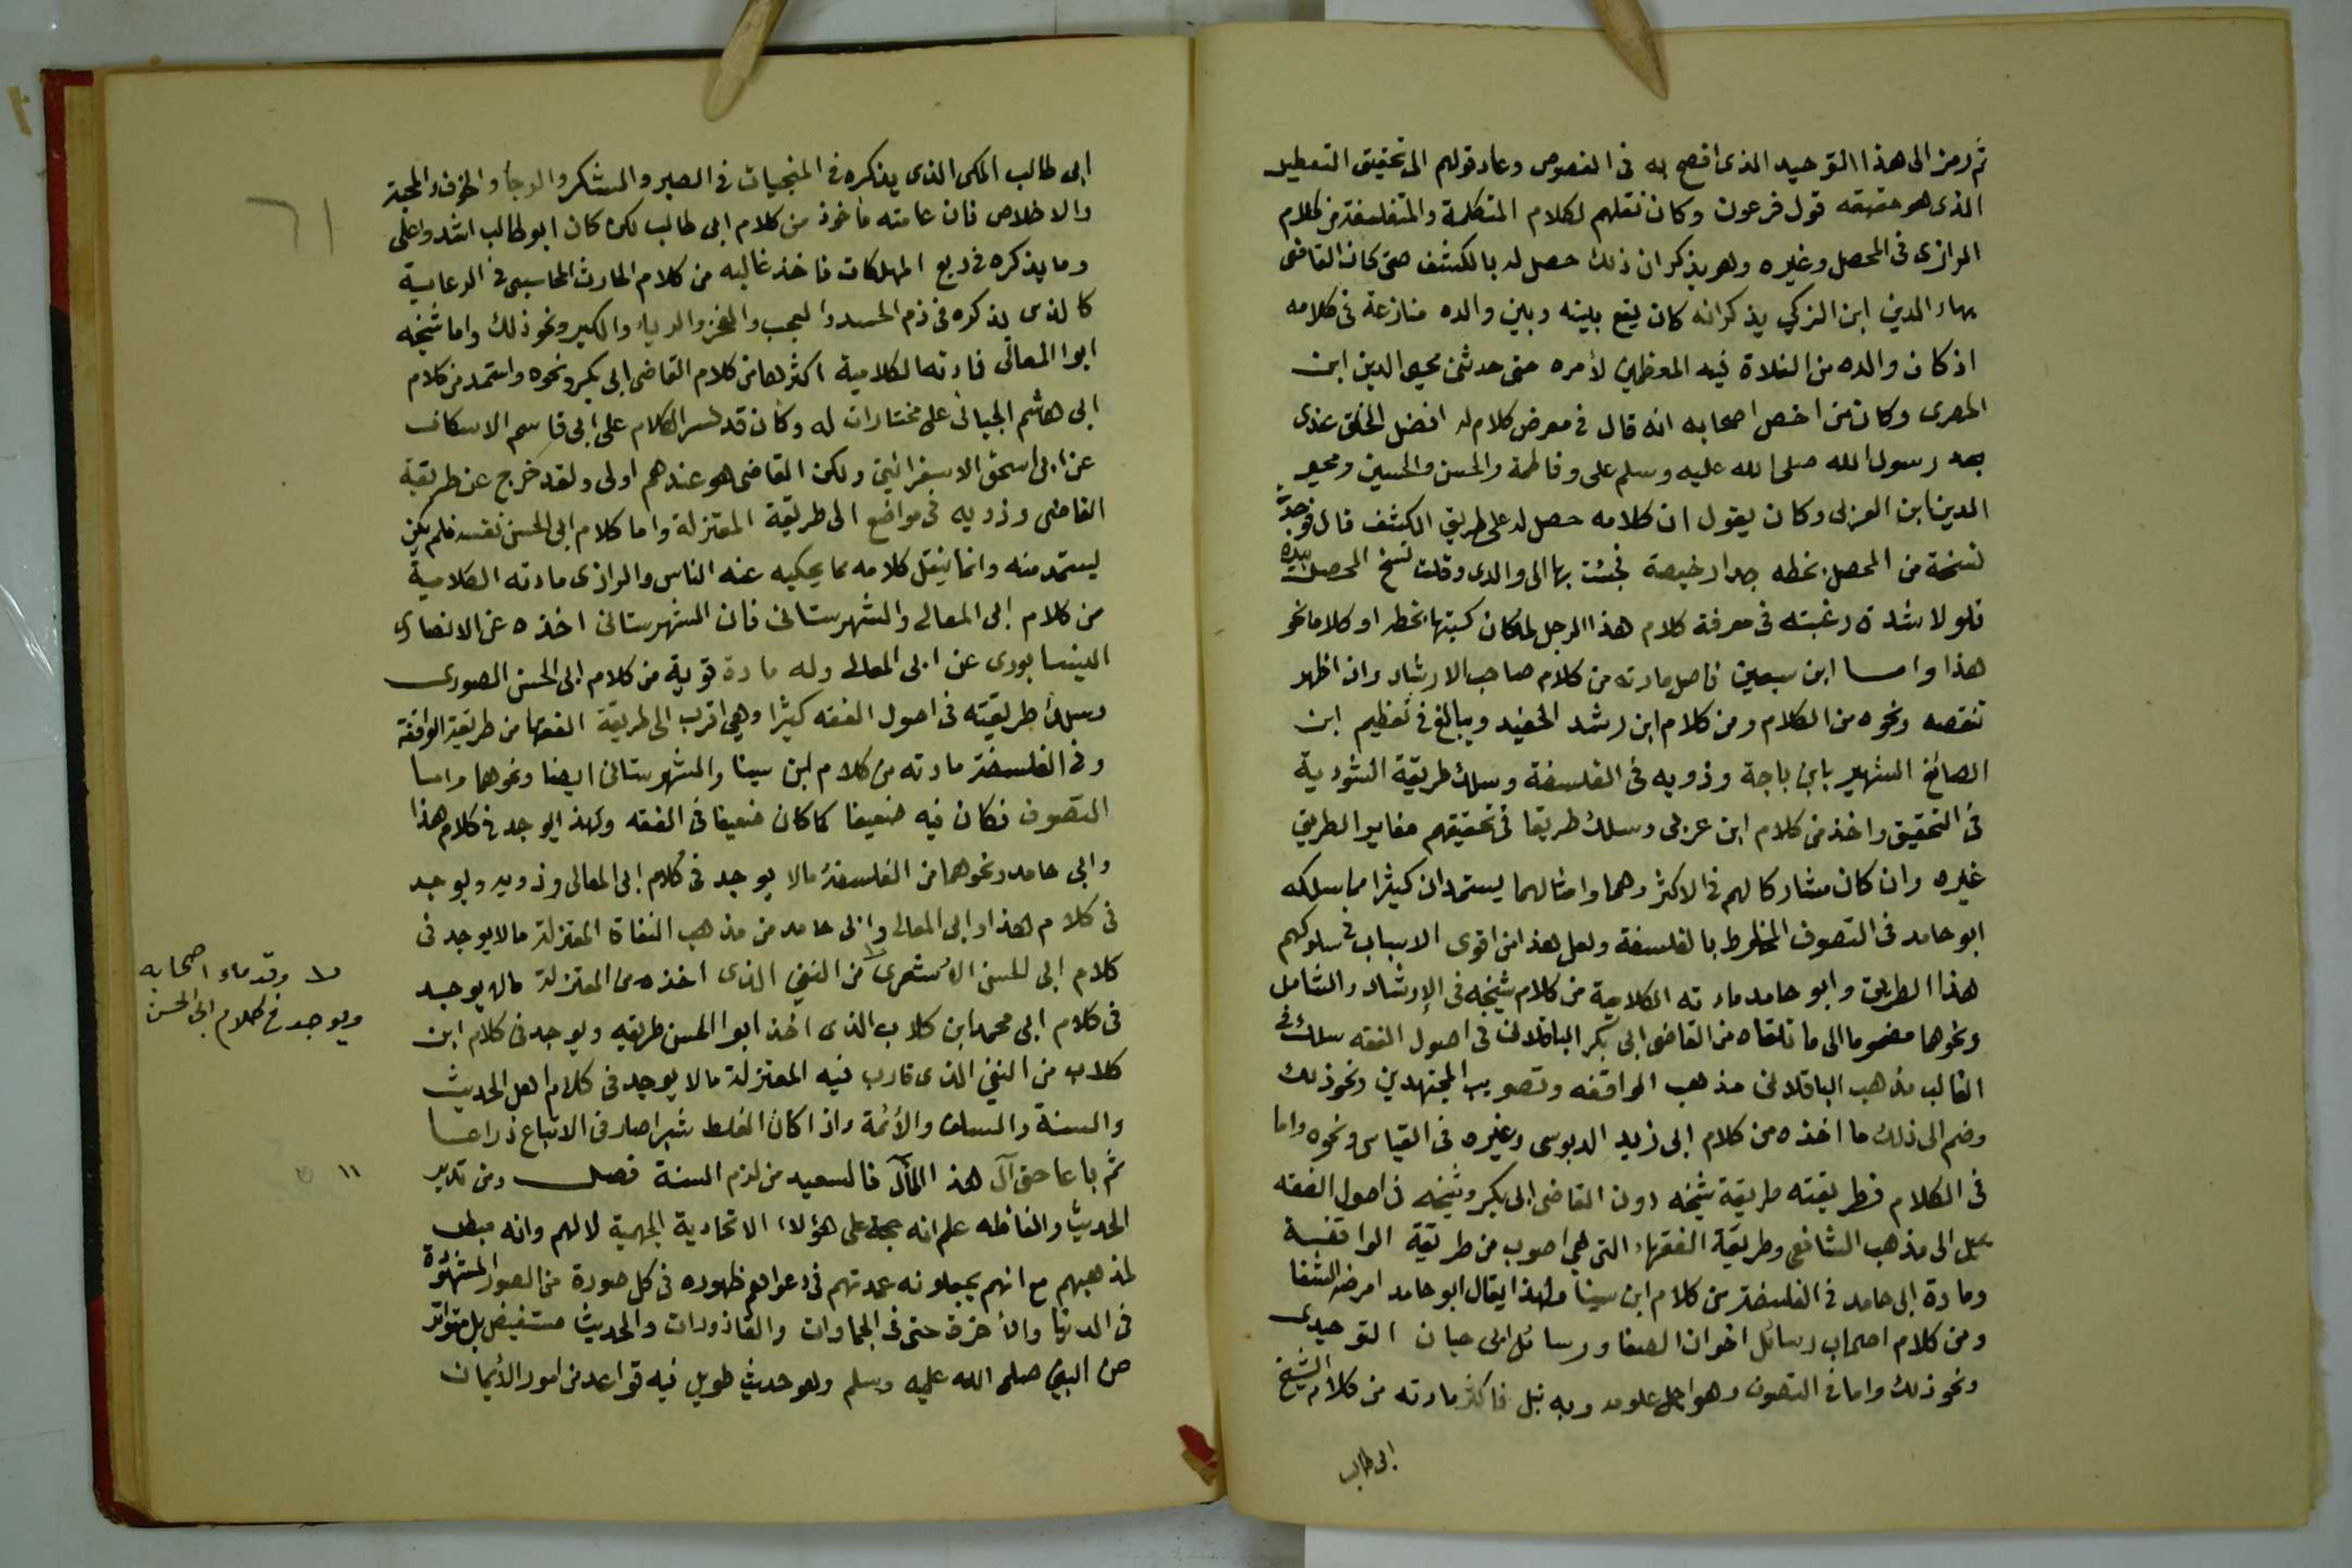 ثم رمز الى هذا التوحيد الذى افصح به فى الفصوص وعاد قولهم الى تحقيق التعطيل
الذى هو حقيقه قول فرعون وكان نقلهم لكلام المتكلمة والمتفلسفة من كلام
الرازى فى المحصل وغيره وهو يذكر ان ذلك حصل له بالكشف حتى كان القاضى
بهاء الدين ابن الزكي يذكر انه كان يقع بينه وبين والده منازعة فى كلامه
اذ كان والده من الغلاة فيه المعظمين لأمره حتى حدثنى محيى الدين ابن
المصرى وكان من اخص اصحابه انه قال فى معرض كلام له افضل الخلق عندى
بعد رسول الله صلى الله عليه وسلم على وفاطمة والحسن والحسين ومحيى
الدين ابن العربى وكان يقول ان كلامه حصل له على طريق الكشف قال فوجدت
نسخة من المحصل بخطه جدا رخيصة فجئت بها الى والدى وقلت نسخ المحصل بيده
فلولا شدة رغبته فى معرفة كلام هذا الرجل لما كان كتبها بخطه او كلاما نحو
هذا واما ابن سبعين فاصل مادته من كلام صاحب الارشاد وان اظهر
تنقصه ونحوه من الكلام ومن كلام ابن رشد الحفيد ويبالغ فى تعظيم ابن
الصائغ الشهير بابن باجة وذويه فى الفلسفة وسلك طريقة الشوذية
فى التحقيق واخذ من كلام ابن عربى وسلك طريقا فى تحقيقهم مغاير الطريق
غيره وان كان مشاركا لهم فى الاكثر وهما وامثالهما يستمدان كثيرا مما سلكه
ابو حامد فى التصوف المخلوط بالفلسفة ولعل هذا من اقوى الاسباب فى سلوكهم
هذا الطريق وابو حامد مادته الكلامية من كلام شيخه فى الإرشاد والشامل
ونحوها مضموما الى ما تلقاه من القاضى ابى بكر الباقلانى فى اصول الفقه سلك فى
الغالب مذهب الباقلانى مذهب الواقفه وتصويب المجتهدين ونحو ذلك
وضم الى ذلك ما اخذه من كلام ابى زيد الدبوسى وغيره فى القياس ونحوه واما
فى الكلام فطريقته طريقة شيخه دون القاضى ابى بكر وشيخه فى اصول الفقه
يميل الى مذهب الشافعى وطريقة الفقهاء التى هى اصوب من طريقة الواقفية
ومادة ابى حامد فى الفلسفة من كلام ابن سينا ولهذا يقال ابو حامد امرضه الشفا
ومن كلام اصحاب رسائل اخوان الصفا ورسائل ابى حيان التوحيدى
ونحو ذلك واما فى التصوف وهو اجل علومه وبه نبل فاكثر مادته من كلام الشيخ
ابى طالب
٦١
ابى طالب المكى الذى يذكره فى المنجيات فى الصبر والشكر والرجأ والخوف والمحبة
والاخلاص فان عامته مأخوذ من كلام ابى طالب لكن كان ابو طالب اشد واعلى
وما يذكره فى ربع المهلكات فاخذ غالبه من كلام الحارث المحاسبى فى الرعاية
كالذى يذكره فى ذم الحسد والعجب والفخر والرياء والكبر ونحو ذلك واما شيخه
ابوا المعالى فادته الكلامية اكثرها من كلام القاضى ابى بكر ونحوه واستمد من كلام
ابى هاشم الجبائى على مختارات له وكان قد فسر الكلام على ابى قاسم الاسكاف
عن ابى اسحق الاسفرائينى ولكن القاضى هو عندهم اولى ولقد خرج عن طريقة
القاضى وذويه فى مواضع الى طريقة المعتزلة واما كلام ابى الحسن نفسه فلم يكن
يستمد منه وانما ينقل كلامه مما يحكيه عنه الناس والرازى مادته الكلامية
من كلام ابى المعالى والشهرستانى فان الشهرستانى اخذه عن الانصارى
النيسابورى عن ابى المعالى وله مادة قوية من كلام ابى الحسن البصورى
وسلك طريقته فى اصول الفقه كثيرا وهى اقرب الى طريقة الفقها من طريقة الواقفة
وفى الفلسفة مادته من كلام ابن سينا والشهرستانى ايضا ونحوهما واما
التصوف فكان فيه ضعيفا كما كان ضعيفا فى الفقه ولهذا يوجد فى كلام هذا
وابى حامد ونحوهما من الفلسفة مالا يوجد فى كلام ابى المعالى وذويه ويوجد
فى كلام هذا وابى المعالى وابى حامد من مذهب النفاة المعتزلة ما لا يوجد فى
كلام ابى الحسن الأشعرى من النفى الذى اخذه من المعتزلة مالا يوجد
فى كلام ابى محمد ابن كلاب الذى اخذ ابوا الحسن طريقه ويوجد فى كلام ابن
كلاب من النفى الذى قارب فيه المعتزلة ما لا يوجد فى كلام اهل الحديث
والسنة والسلف والأئمة واذا كان الغلط شبرا صار فى الاتباع ذراعا
ثم باعا حتى آل هذا المآل فالسعيد من لزم السنة فصل ومن تدبر
الحديث والفاظه علم انه حجة على هؤلاء الاتحادية الجهمية لا لهم وانه مبطل
لمذهبهم مع انهم يجعلونه عمدتهم فى دعواهم ظهوره فى كل صورة من الصور المشهوة
فى الدنيا والأخرة حتى فى الجمادات والقاذورات والحديث مستفيض بل متواتر
عن النبى صلى الله عليه وسلم وهو حديث طويل فيه قواعد من امور الأيمان
وقدماء اصحابه
ويوجد فى كلام ابى الحسن